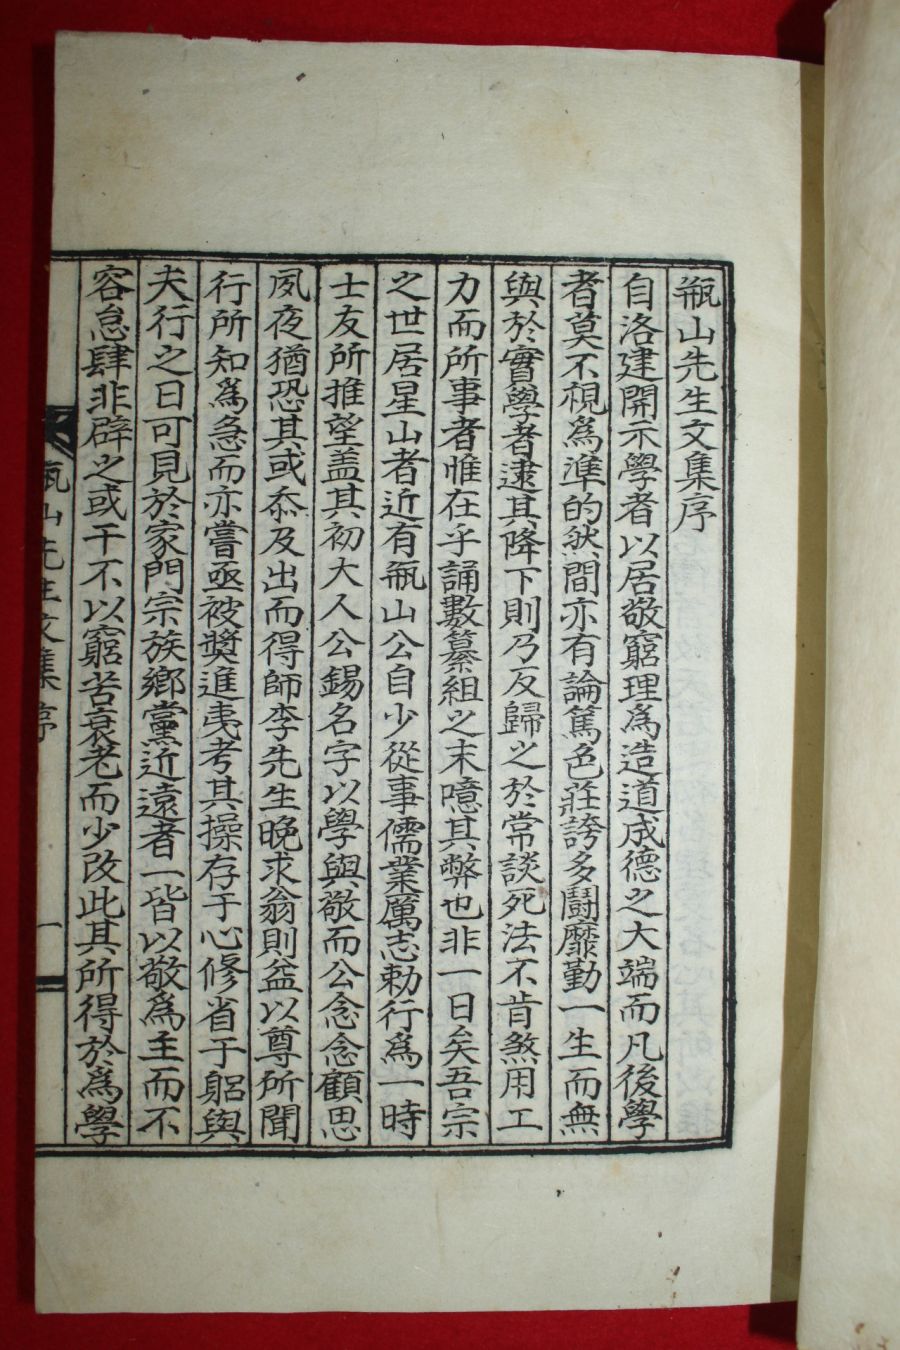 甁山先生文集序
自洛建開示學者以居敬窮理爲造道成德之大端而凡後學
者莫不視爲準的然間亦有論篤色莊誇多鬪靡勤一生而無
與於實學者逮其降下則乃反歸之於常談死法不肯煞用工
力而所事者惟在乎誦數纂組之末噫其弊也非一日矣吾宗
之世居星山者近有甁山公自少從事儒業厲志勅行爲一時
士友所推望盖其初大人公錫名字以學與敬而公念念顧思
夙夜猶恐其或忝及出而得師李先生晩求翁則益以尊所聞
行所知爲急而亦嘗亟被奬進焉考其操存于心修省于躳與
夫行之日可見於家門宗族鄕黨近遠者一皆以敬爲主而不
容怠肆非辟之或干不以窮苦衰老而少改此其所得於爲學
甁山先生文集序
一